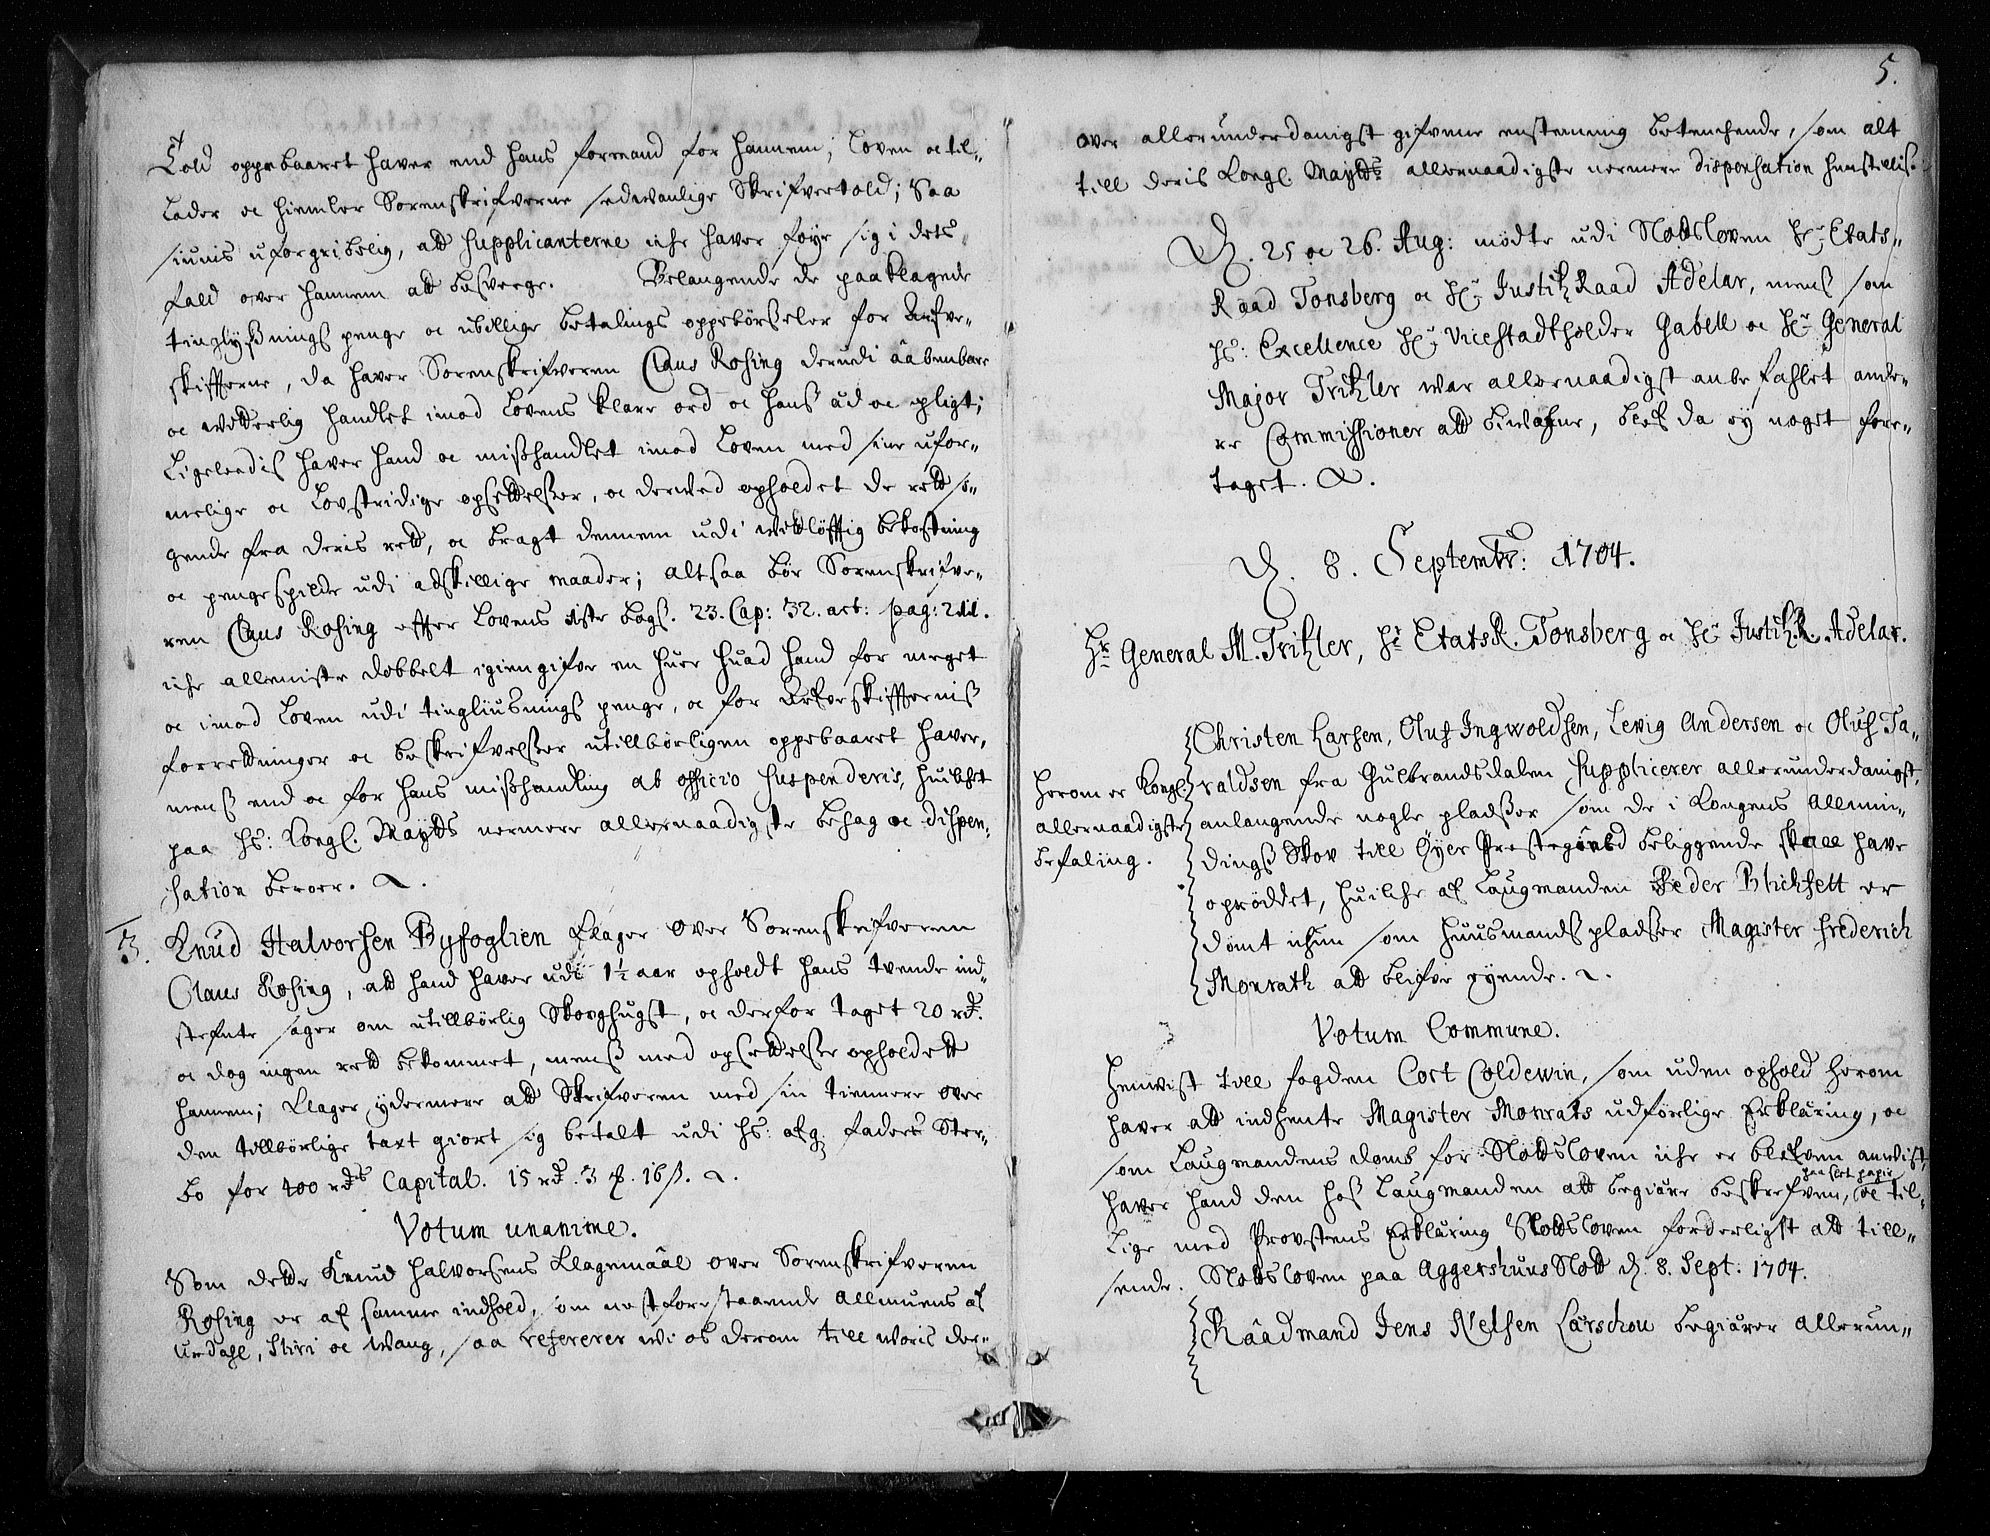 Told oppebaaret haver end hans formand for hannem; Loven oc til-
lader oc hiemler Sorenskrifverne sedvanlige Skrifvertold; Saa
siunis uforgribelig, att Supplicanterne iche haver føye sig i dets
fald over hannem att besverge. Belangende de paaklagede
tinglysnings penge oc ubillige betalings oppebørsseler for Arfve-
skiffterne, da haver Sorenskrifveren Claus Rosing derudi aabenbare
oc witterlig handlet imod Lovens klare ord oc hans æd oc pligt;
Ligeleedis haver hand oc misshandlet imod Loven med sine ufor-
nelige oc Lovstridige opsettelsser, oc derved opholdet de rett sø-
gende fra deris rett, oc bragt dennem udi vittløfftig bekostning
oc pengespilde udi adskillige maader; altsaa bør Sorenskrifve-
ren Claus Rosing effter Lovens 1ste Bogs. 23. Cap: 32. art: pag:
iche alleniste dobbelt igiengifve en huer huad hand for meget
oc imod Loven udi tingliusnings penge, oc for Arfveskiffternis
forretninger oc beskrifvelsser utillbørligen oppebaaret haver,
mens end oc for hans misshandling ab officio suspenderis, huilchet
paa hs: Kongl. Maytts nermere allernaadigste behag oc dispen-
sation beroer.
3. Knud Halvorsen Byfoglien klager over Sorenskrifveren
Claus Rosing, att hand haver udi 1½ aar opholdt hans tvende ind-
stefnte sager om utillbørlig Skovghugst, oc derfor taget 20 rd.
oc dog ingen rett bekommet, menss med opsettelsse opholdett
hannem; klager ydermere att Skrifveren med sin tiennere over
den tillbørlige taxt giort sig betalt udi hs: afg. faders Ster-
bo for 400 rds Capital. 15 rd. 3 16 s.
Votum unanime.
Som dette Knud Halvorsens klagemaal over Sorenskrifveren
Rosing er af samme indhold, som nest forestaaende Allmuens af
Urdahl, Sliri oc Wang, saa refererer wi os derom till woris der-
5.
over allerunderdanigst gifvene enstemmig betenchende, som alt
till deris Kongl. Maytts allernaadigste nermere dispensation henstillis.
D. 25 oc 26. Aug: mødte udi Slotsloven Hr. Etats-
Raad Tonsberg oc Hr. JustitzRaad Adelar, mens som
hs: Excellence Hr. Vicestadtholder Gabell oc Hr. General
Major Tritzler war allernaadigst anbefahlet ande-
re Commissioner att biwaane, blef da ey noget fore-
taget.
D. 8. Septembr: 1704.
Hr. General M. Tritzler, Hr. EtatsR. Tonsberg oc Hr. Justitz.R. Adelar.
Christen Larsen, Oluf Ingwoldsen, Lewig Andersen oc Oluf Ta-
raldsen fra Gulbrandsdalen Supplicerer allerunderdanigst,
anlangende nogle pladsser som de i Kongens Allmin-
dings Skov till Øyer Prestegield beliggende skall have
oprøddet, huilche af Laugmanden Peder Blichfelt er
dømt som Huusmands pladsser Magister Frederich
Monrath att blifve eyende.
Herom er Kongl.
allernaadigste
befaling.
Votum Commune.
Henvist till fogden Cort Coldewin, som uden ophold herom
haver att indhente Magister Monrats udførlige Erklæring, oc
som Laugmandens domb for Slotsloven iche er blefven anvist,
haver hand den hos Laugmanden att begiære beskrefven, oc til-
paa slet papir
lige med Provstens Erklæring Slotsloven forderligst att till-
sende. Slotsloven paa Aggershuus Slott d. 8. Sept: 1704.
Raadmand Jens Nelsen Larschou begiærer allerun-